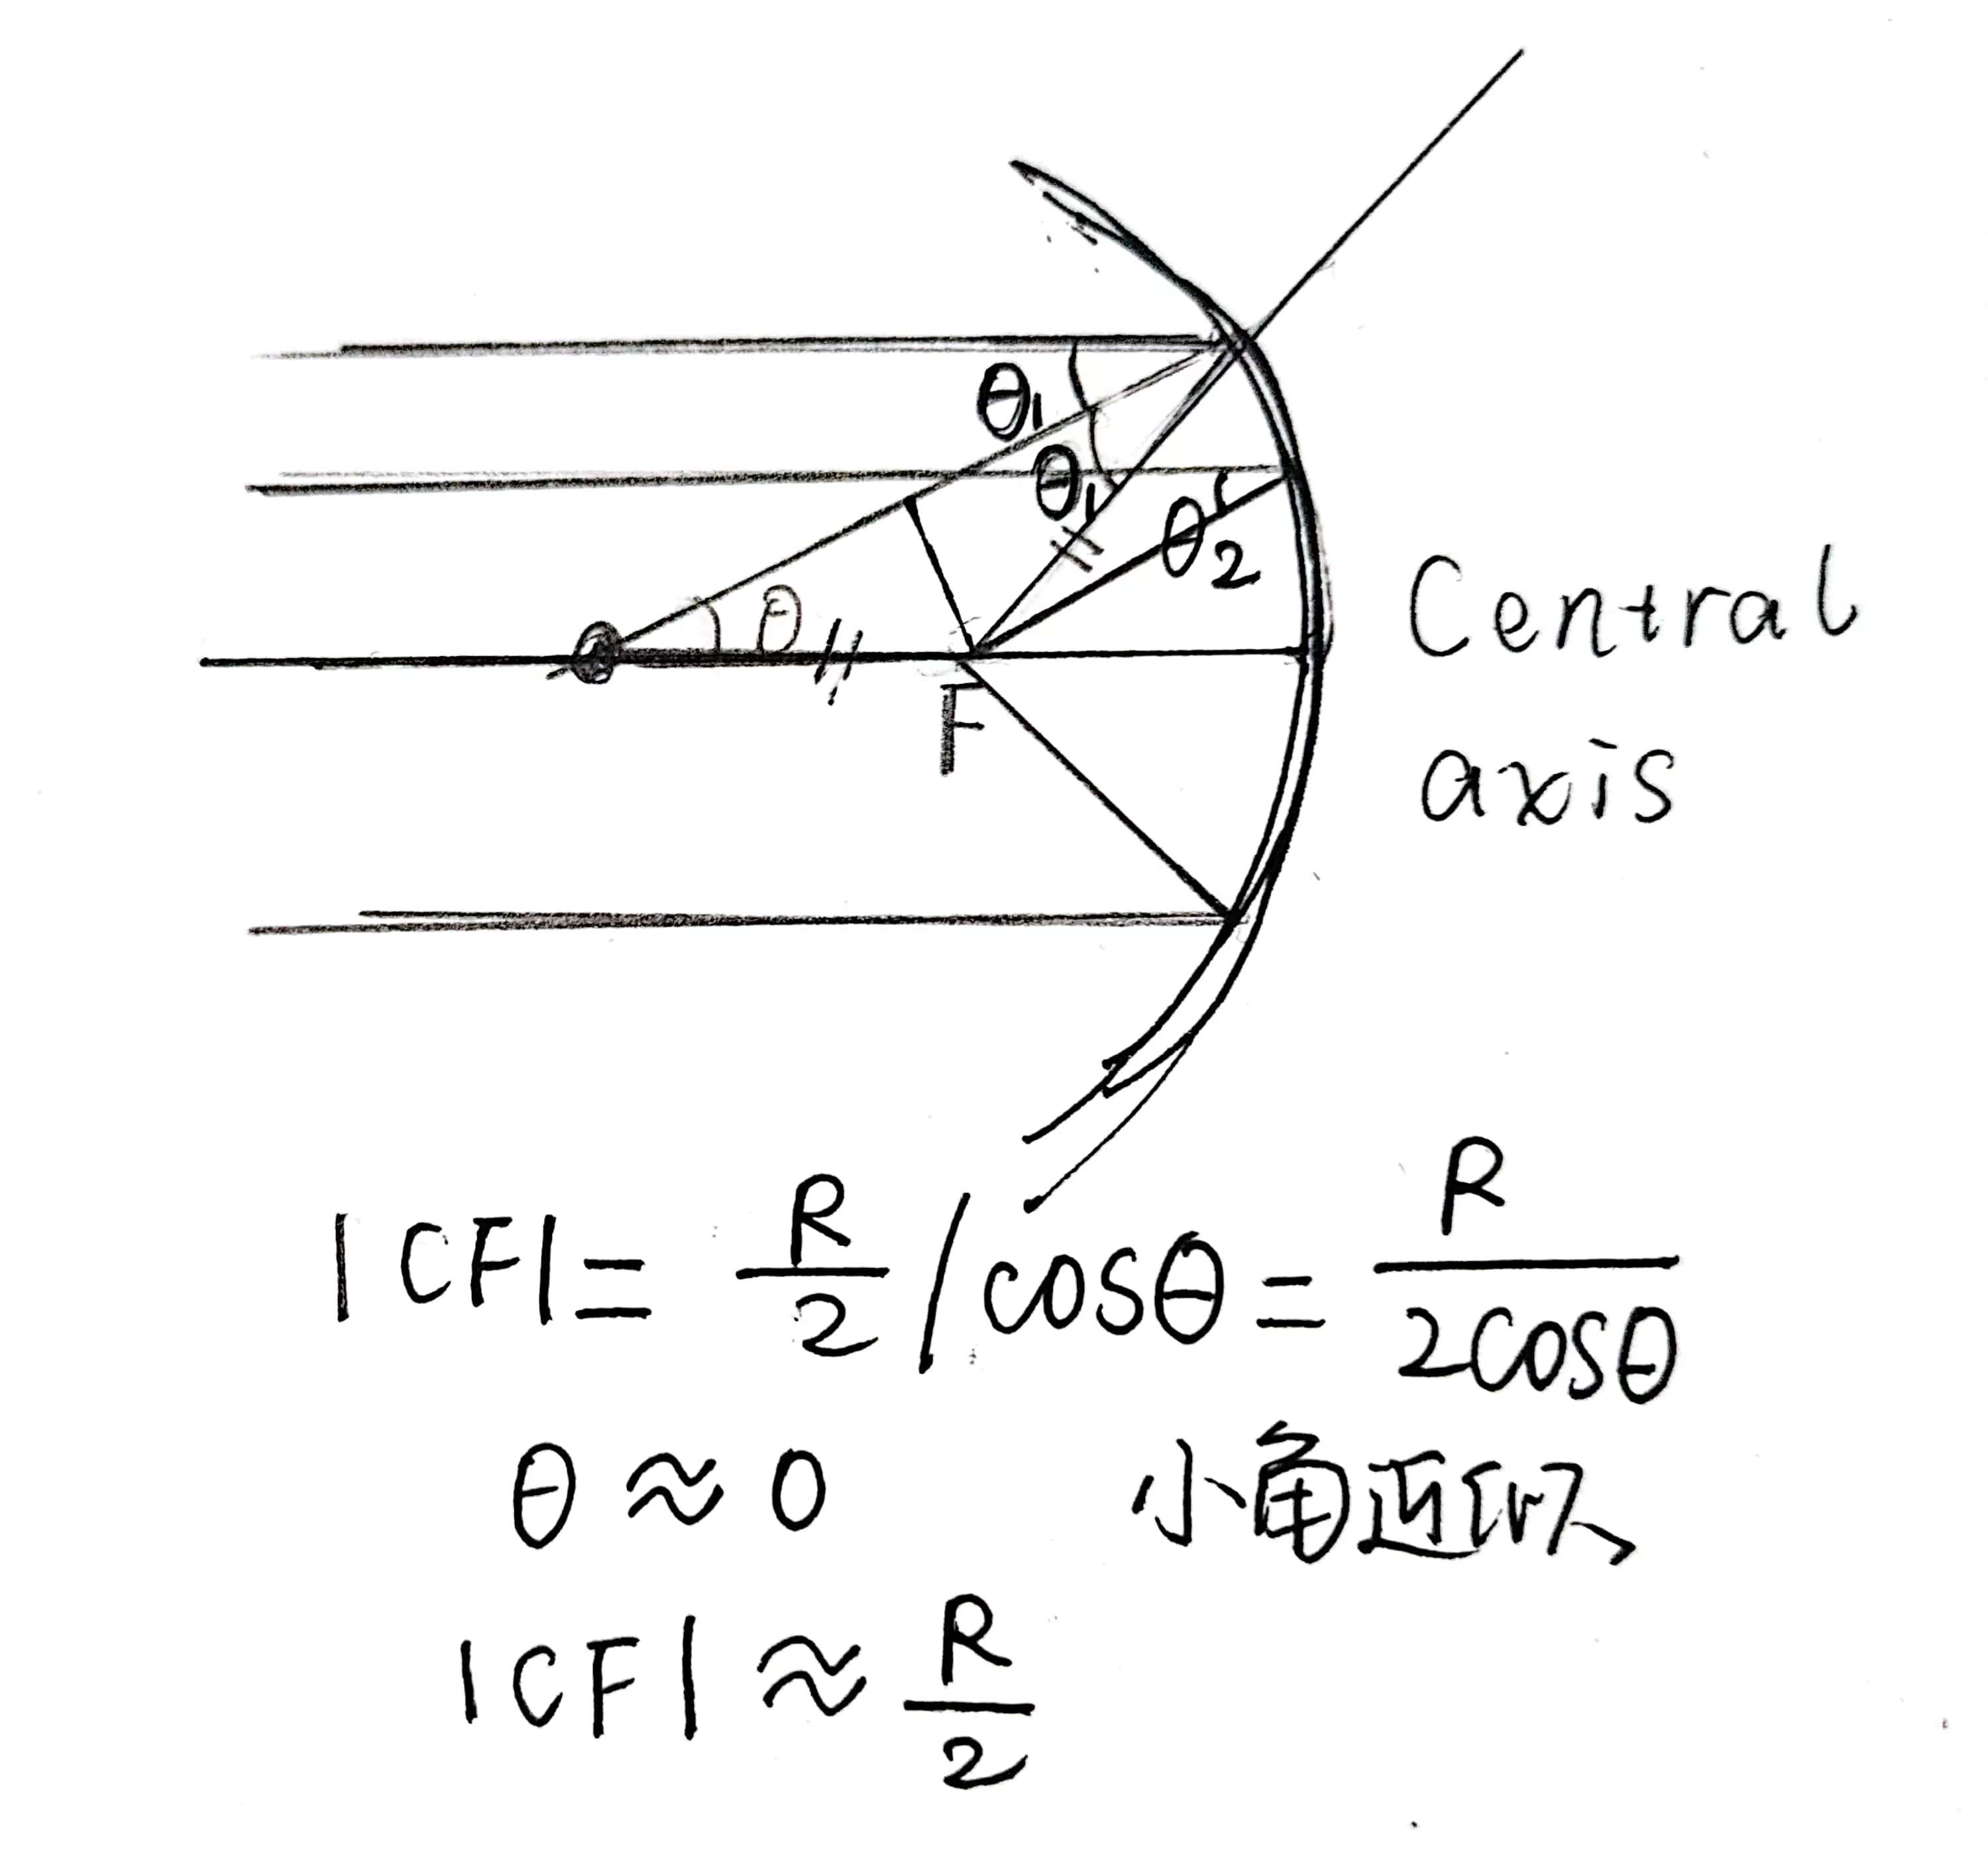 θ₁
θ₁
θ₂
θ
F
Central
axis
|CF| = R/2 / cosθ = R/2cosθ
θ ≈ 0 小角近似
|CF| ≈ R/2